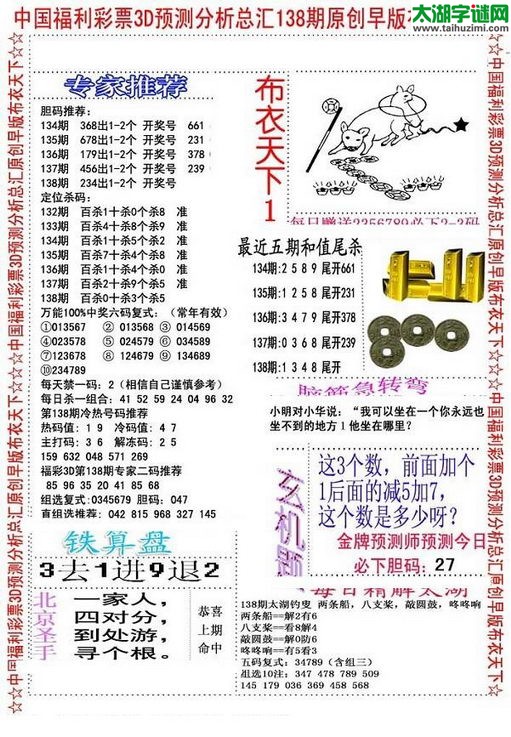 中国福利彩票3D预测分析总汇138期原创早版
太湖字谜网
www.taihuzimi.com
☆☆中国福利彩票3D预测分析总汇原创早版布衣天下☆☆
专家推荐
胆码推荐：
134期 368出1-2个 开奖号 661
135期 678出1-2个 开奖号 231
136期 179出1-2个 开奖号 378
137期 456出1-2个 开奖号 239
138期 234出1-2个 开奖号
定位杀码：
132期 百杀1十杀0个杀8 准
133期 百杀4十杀8个杀9 准
134期 百杀5十杀4个杀2 准
135期 百杀9十杀7个杀6 准
136期 百杀1十杀4个杀0 准
137期 百杀1十杀4个杀7 准
138期 百杀0十杀3个杀5
万能100%中奖六码复式：（常年有效）
①013567 ②013568 ③014569
④023578 ⑤024579 ⑥034578
⑦123678 ⑧124679 ⑨134689
⑩234789
每天禁一码：2（相信自己谨慎参考）
每日杀一组合：41 52 59 24 04 96 32
第138期冷热号码推荐
热码值：1 9 冷码值：4 7
主打码：3 6 解冻码：2 5
159 632 048 571 269
福彩3D第138期专家二码推荐
85 96 35 20 41 85 68
组选复式：0345679 胆码：047
直组选推荐：042 815 968 327 145
布衣天下1
每日赠送2356789必下2-3码
最近五期和值尾杀
134期:2 5 8 9 尾开661
135期:1 2 5 8 尾开231
136期:3 4 7 9 尾开378
137期:0 3 6 8 尾开239
138期:1 3 4 8 尾开
脑筋急转弯
小明对小华说：“我可以坐在一个你永远也
坐不到的地方！他坐在哪里？
玄机图
这3个数，前面加个
1后面的减5加7，
这个数是多少呀?
金牌预测师预测今日
必下胆码：27
铁算盘
3去1进9退2
北京圣手
一家人，
四对分，
到处游，
寻个根。
恭喜
上期
命中
每日精解太湖
138期太湖钓叟 两条船，八支桨，敲圆鼓，咚咚响
两条船==解2有6
八支桨==看8解4
敲圆鼓==解0防6
咚咚响==有5看3
五码复式：34789（含组三）
组选10注：347 478 789 509
145 179 036 369 458 568
☆☆中国福利彩票3D预测分析总汇原创早版布衣天下☆☆